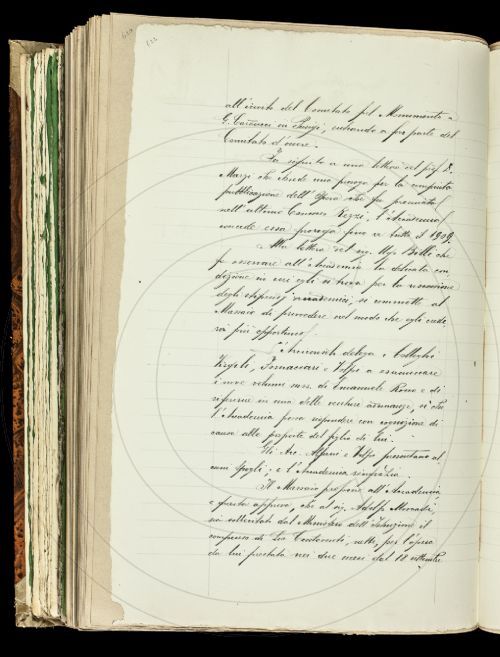 122
all'invito del Comitato pel Monumento a
G. Carducci in Parigi, entrando a far parte del
Comitato d'onore.
In risposta a una lettera del prof. E.
Marzi che chiede una proroga per la compiuta
pubblicazione dell'Opera che fu premiata
nell'ultimo Concorso Rezzi, l'Accademia
concede essa proroga fino a tutto il 1909.
Alla lettera del sig. Ugo Belli che
fa osservare all'Accademia la delicata con
dizione in cui egli si trova per la riscossione
degli stipendj accademici, si commette al
Massaio di provvedere nel modo che egli crede
rà più opportuno.
L'Accademia delega i Colleghi
Vitelli, Fornaciari e Volpi a esaminare
i nove volumi mss. di Emanuele Rossi e di
riferirne in una delle venture adunanze, sì che
l'Accademia possa rispondere con cognizione di
causa alle proposte del figlio di lui.
Gli Acc. Alfani e Volpi presentano al
cuni spogli; e l'Accademia ringrazia.
Il Massaio propone all'Accademia
e questa approva, che al sig. Adolfo
sia dal Ministero dell'Istruzione il
compenso di Lire Centoventi, nette, per l'opera
da lui prestata nei due mesi dal 18 settembre